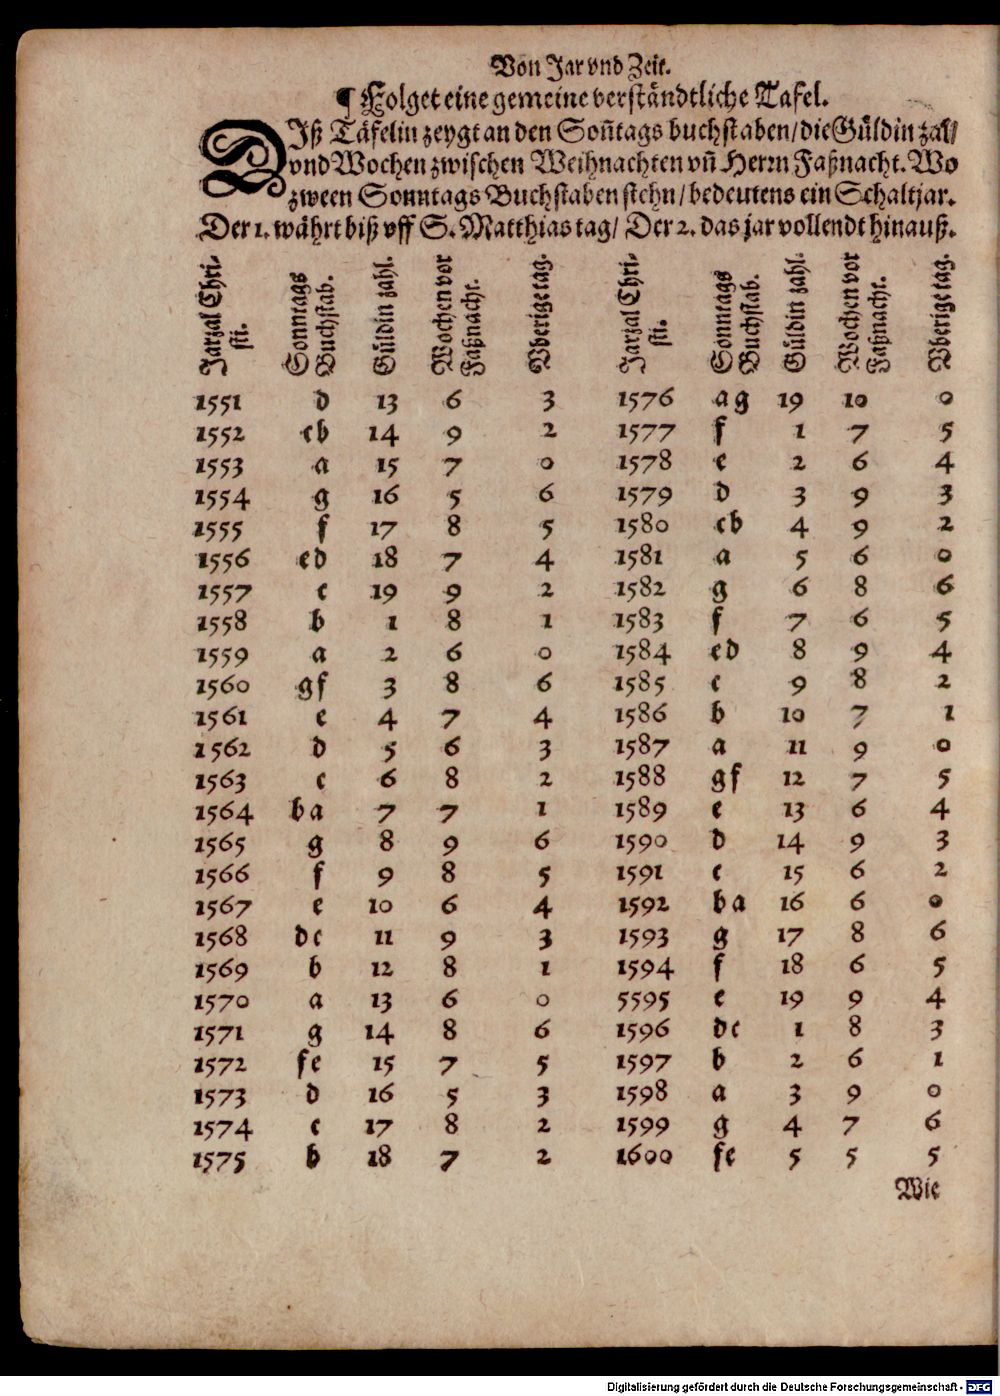 Von Jar vnd Zeit.
¶ Folget eine gemeine verständtliche Tafel.
DIß Täfelin zeygt an den Soñtags buchstaben/die Güldin zal/
vnd Wochen zwischen Weihnachten vñ Herrn Faßnacht. Wo
zween Sonntags Buchstaben stehn/bedeutens ein Schaltjar.
Der 1. währt biß vff S. Matthias tag/ Der 2. das jar vollendt hinauß.
Jarzal Chri-
sti.
Sonntags
Buchstab.
Güldin zahl.
Wochen vor
Faßnacht.
Vberige tag.
Jarzal Chri-
sti.
Sonntags
Buchstab.
Güldin zahl.
Wochen vor
Faßnacht.
Vberige tag.
1551 d 13 6 3 1576 ag 19 10 0
1552 cb 14 9 2 1577 f 1 7 5
1553 a 15 7 0 1578 e 2 6 4
1554 g 16 5 6 1579 d 3 9 3
1555 f 17 8 5 1580 cb 4 9 2
1556 ed 18 7 4 1581 a 5 6 0
1557 c 19 9 2 1582 g 6 8 6
1558 b 1 8 1 1583 f 7 6 5
1559 a 2 6 0 1584 ed 8 9 4
1560 gf 3 8 6 1585 c 9 8 2
1561 e 4 7 4 1586 b 10 7 1
1562 d 5 6 3 1587 a 11 9 0
1563 c 6 8 2 1588 gf 12 7 5
1564 ba 7 7 1 1589 e 13 6 4
1565 g 8 9 6 1590 d 14 9 3
1566 f 9 8 5 1591 c 15 6 2
1567 e 10 6 4 1592 ba 16 6 0
1568 dc 11 9 3 1593 g 17 8 6
1569 b 12 8 1 1594 f 18 6 5
1570 a 13 6 0 5595 e 19 9 4
1571 g 14 8 6 1596 dc 1 8 3
1572 fe 15 7 5 1597 b 2 6 1
1573 d 16 5 3 1598 a 3 9 0
1574 c 17 8 2 1599 g 4 7 6
1575 b 18 7 2 1600 fe 5 5 5
Wie
Digitalisierung gefördert durch die Deutsche Forschungsgemeinschaft - DFG